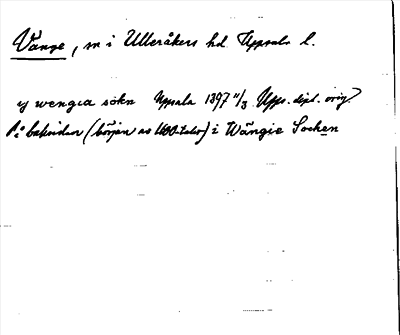 Vänge, sn i Ulleråkers hd Uppsala l.
ij wengia sokn Uppsala 1397 11/3 Upps. dipl. orig.
På baksidan (början av 1600-talet) i Wängie Sochen